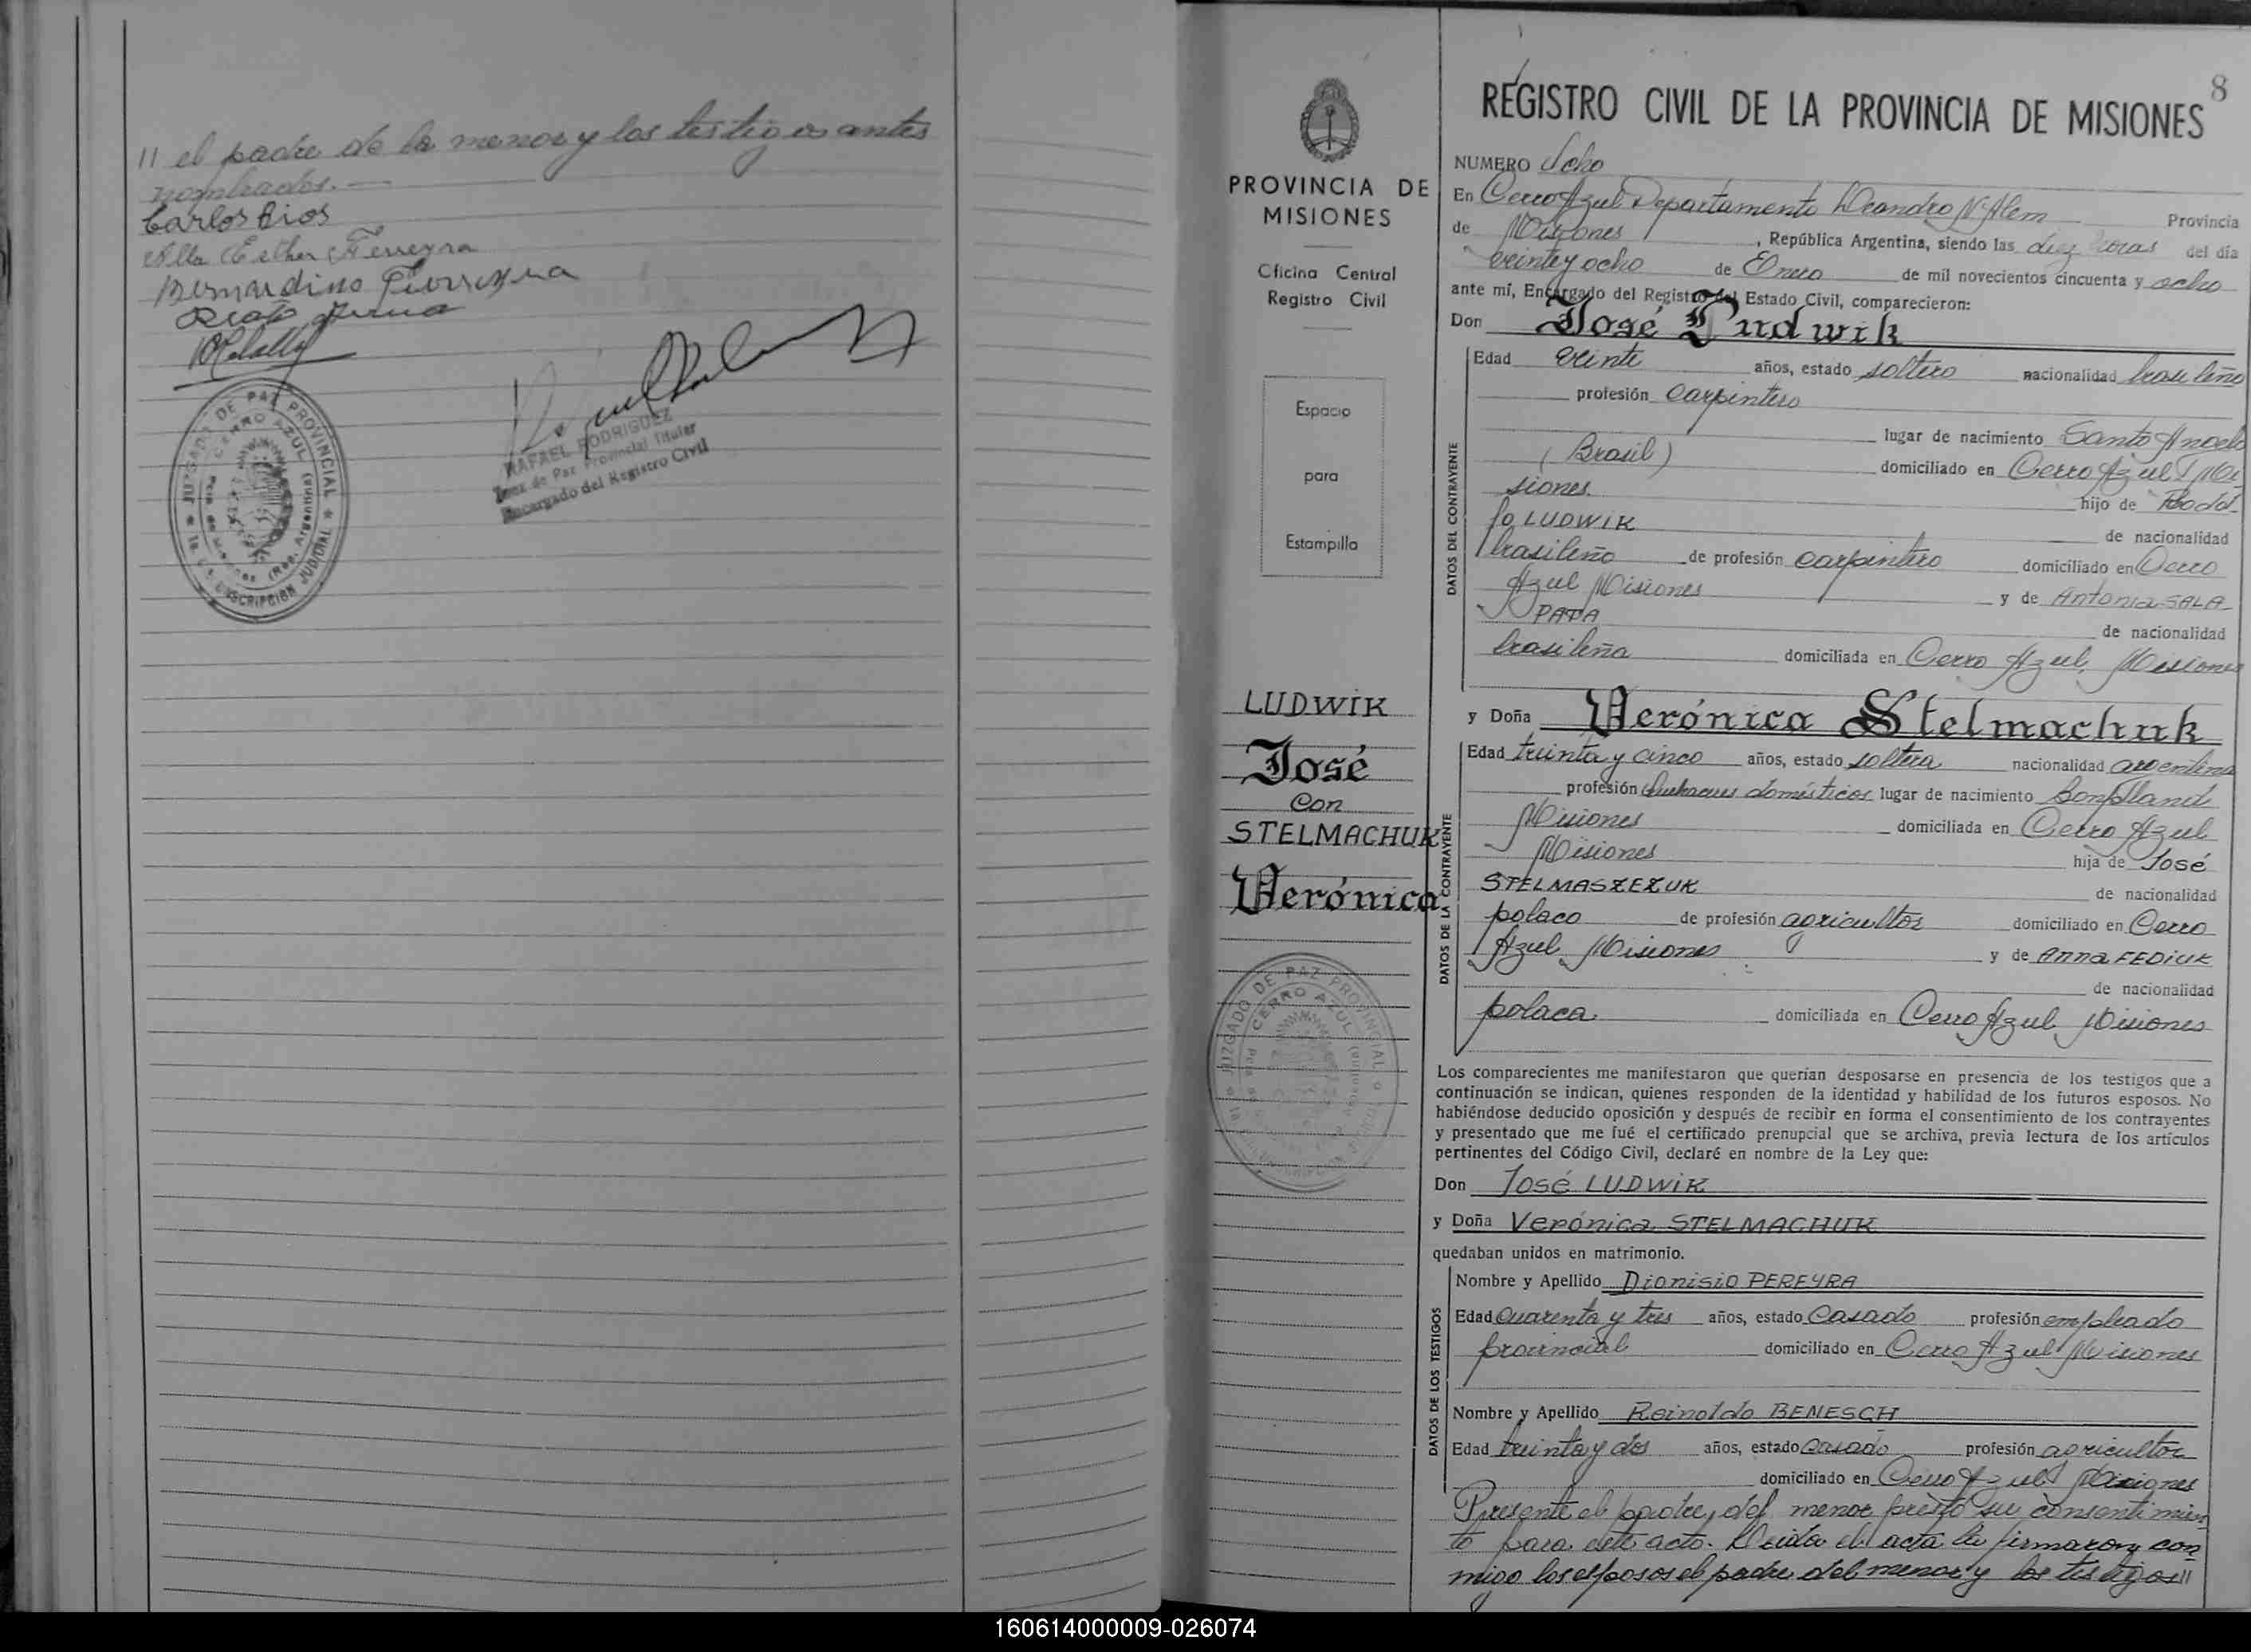 11 el padre de la menor y los testigos antes
nombrados.—
Carlos Rios
Esther Ferreyra
Bernardino Ferreyra
RAFAEL RODRIGUEZ
Juez de Paz Provincial Titular
Encargado del Registro Civil
JUZGADO DE PAZ PROVINCIAL
CERRO AZUL
PROVINCIA DE
MISIONES
Oficina Central
Registro Civil
Espacio
para
Estampilla
LUDWIK
José
Con
STELMACHUK
Verónica
JUZGADO DE PAZ PROVINCIAL
CERRO AZUL
8
REGISTRO CIVIL DE LA PROVINCIA DE MISIONES
NUMERO Ocho
En Cerro Azul Departamento Leandro N. Alem Provincia
de Misiones, República Argentina, siendo las diez horas del día
veinte y ocho de Enero de mil novecientos cincuenta y ocho
ante mí, Encargado del Registro del Estado Civil, comparecieron:
Don José Ludwik
DATOS DEL CONTRAYENTE
Edad veinte años, estado soltero nacionalidad brasileño
profesión Carpintero
lugar de nacimiento Santo Angelo
(Brasil) domiciliado en Cerro Azul Mi-
siones. hijo de Rodol-
fo LUDWIK de nacionalidad
brasileño de profesión carpintero domiciliado en Cerro
Azul Misiones y de Antonia SALA
PATA de nacionalidad
brasileña domiciliada en Cerro Azul, Misiones
y Doña Verónica Stelmachuk
DATOS DE LA CONTRAYENTE
Edad treinta y cinco años, estado soltera nacionalidad argentina
profesión Quehaceres domésticos lugar de nacimiento Bonpland
Misiones domiciliada en Cerro Azul
Misiones hija de José
STELMASZEZUK de nacionalidad
polaco de profesión agricultor domiciliado en Cerro
Azul Misiones y de Anna FEDIUK
de nacionalidad
polaca. domiciliada en Cerro Azul Misiones
Los comparecientes me manifestaron que querían desposarse en presencia de los testigos que a
continuación se indican, quienes responden de la identidad y habilidad de los futuros esposos. No
habiéndose deducido oposición y después de recibir en forma el consentimiento de los contrayentes
y presentado que me fué el certificado prenupcial que se archiva, previa lectura de los artículos
pertinentes del Código Civil, declaré en nombre de la Ley que:
Don José LUDWIK
y Doña Verónica STELMACHUK
quedaban unidos en matrimonio.
DATOS DE LOS TESTIGOS
Nombre y Apellido Dionisio PEREYRA
Edad Cuarenta y tres años, estado Casado profesión empleado
provincial domiciliado en Cerro Azul Misiones
Nombre y Apellido Reinoldo BENESCH
Edad treinta y dos años, estado casado profesión agricultor
domiciliado en Cerro Azul Misiones
Presente el padre, del menor prestó su consentimien-
to para este acto. Leida el acta la firmaron con-
migo los esposos el padre del menor y los testigos 11
160614000009-026074